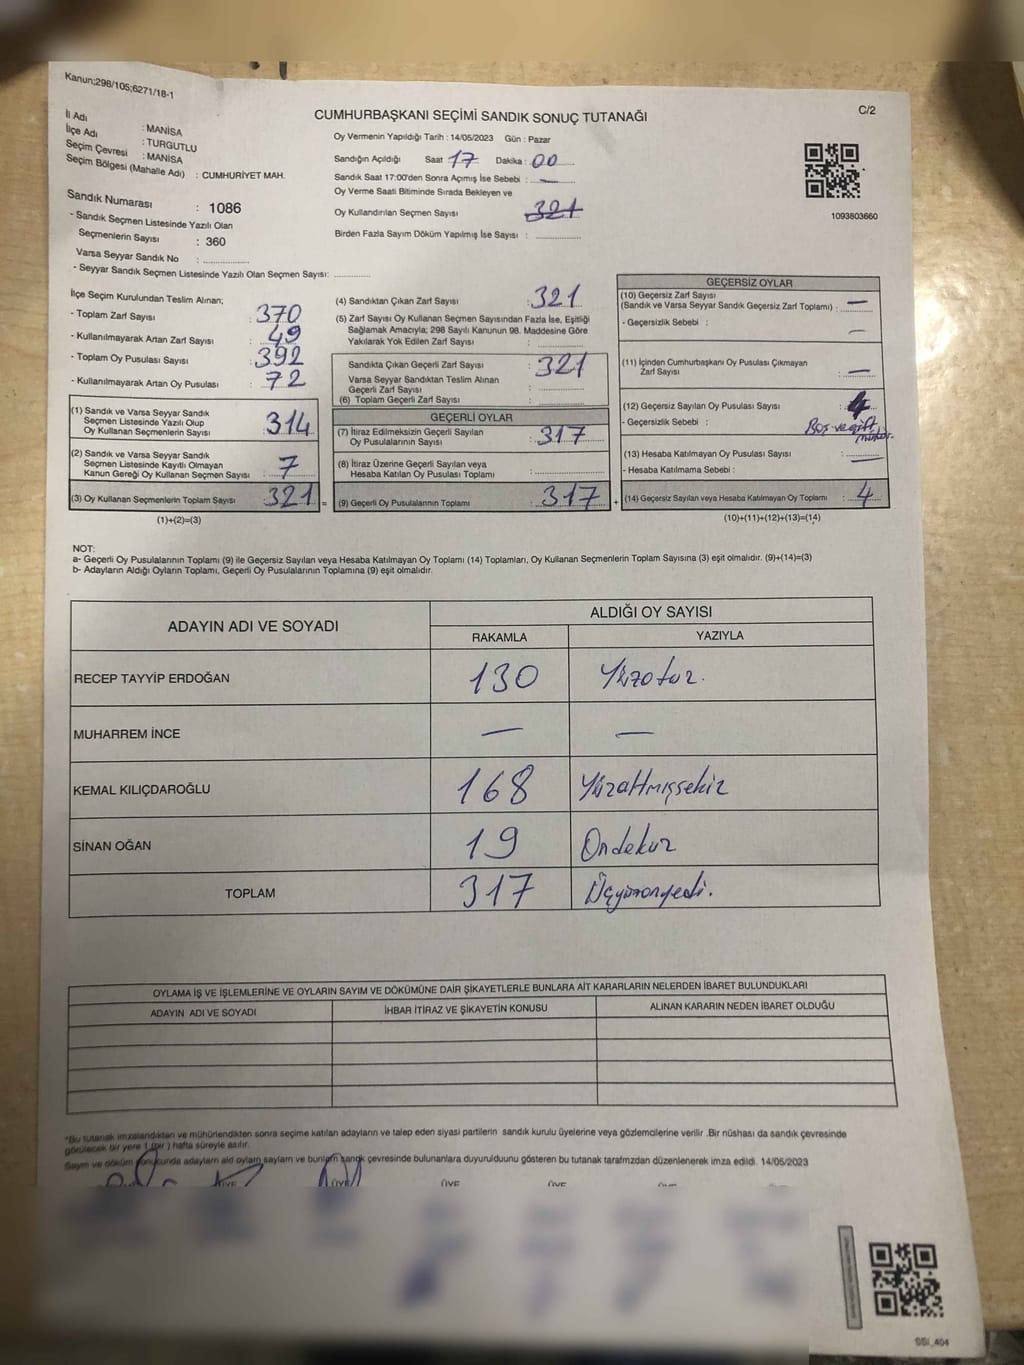 Kanun;298/105;6271/18-1
C/2
CUMHURBAŞKANI SEÇİMİ SANDIK SONUÇ TUTANAĞI
İl Adı : MANİSA
İlçe Adı : TURGUTLU
Seçim Çevresi : MANİSA
Seçim Bölgesi (Mahalle Adı) : CUMHURİYET MAH.
Sandık Numarası : 1086
- Sandık Seçmen Listesinde Yazılı Olan
Seçmenlerin Sayısı : 360
Varsa Seyyar Sandık No :
- Seyyar Sandık Seçmen Listesinde Yazılı Olan Seçmen Sayısı:
Oy Vermenin Yapıldığı Tarih : 14/05/2023 Gün : Pazar
Sandığın Açıldığı Saat 17 Dakika : 00
Sandık Saat 17:00'den Sonra Açımış İse Sebebi : —
Oy Verme Saati Bitiminde Sırada Bekleyen ve
Oy Kullandırılan Seçmen Sayısı 321
Birden Fazla Sayım Döküm Yapılmış İse Sayısı :
1093803660
İlçe Seçim Kurulundan Teslim Alınan;
- Toplam Zarf Sayısı : 370
- Kullanılmayarak Artan Zarf Sayısı : 49
- Toplam Oy Pusulası Sayısı : 392
- Kullanılmayarak Artan Oy Pusulası : 72
(1) Sandık ve Varsa Seyyar Sandık
Seçmen Listesinde Yazılı Olup
Oy Kullanan Seçmenlerin Sayısı : 314
(2) Sandık ve Varsa Seyyar Sandık
Seçmen Listesinde Kayıtlı Olmayan
Kanun Gereği Oy Kullanan Seçmen Sayısı : 7
(3) Oy Kullanan Seçmenlerin Toplam Sayısı : 321 =
(1)+(2)=(3)
(4) Sandıktan Çıkan Zarf Sayısı : 321
(5) Zarf Sayısı Oy Kullanan Seçmen Sayısından Fazla İse, Eşitliği
Sağlamak Amacıyla; 298 Sayılı Kanunun 98. Maddesine Göre
Yakılarak Yok Edilen Zarf Sayısı :
Sandıkta Çıkan Geçerli Zarf Sayısı : 321
Varsa Seyyar Sandıktan Teslim Alınan
Geçerli Zarf Sayısı :
(6) Toplam Geçerli Zarf Sayısı :
GEÇERLİ OYLAR
(7) İtiraz Edilmeksizin Geçerli Sayılan
Oy Pusulasının Sayısı : 317
(8) İtiraz Üzerine Geçerli Sayılan veya
Hesaba Katılan Oy Pusulası Toplamı :
(9) Geçerli Oy Pusulalarının Toplamı : 317 +
GEÇERSİZ OYLAR
(10) Geçersiz Zarf Sayısı
(Sandık ve Varsa Seyyar Sandık Geçersiz Zarf Toplamı) : —
- Geçersizlik Sebebi : —
(11) İçinden Cumhurbaşkanı Oy Pusulası Çıkmayan
Zarf Sayısı : —
(12) Geçersiz Sayılan Oy Pusulası Sayısı : 4
- Geçersizlik Sebebi : Boş ve çift
(13) Hesaba Katılmayan Oy Pusulası Sayısı : —
- Hesaba Katılmama Sebebi :
(14) Geçersiz Sayılan veya Hesaba Katılmayan Oy Toplamı : 4
(10)+(11)+(12)+(13)=(14)
NOT:
a- Geçerli Oy Pusulalarının Toplamı (9) ile Geçersiz Sayılan veya Hesaba Katılmayan Oy Toplamı (14) Toplamları, Oy Kullanan Seçmenlerin Toplam Sayısına (3) eşit olmalıdır. (9)+(14)=(3)
b- Adayların Aldığı Oyların Toplamı, Geçerli Oy Pusulalarının Toplamına (9) eşit olmalıdır.
ADAYIN ADI VE SOYADI
ALDIĞI OY SAYISI
RAKAMLA YAZIYLA
RECEP TAYYİP ERDOĞAN 130 Yüzotuz.
MUHARREM İNCE — —
KEMAL KILIÇDAROĞLU 168 Yüzaltmışsekiz
SİNAN OĞAN 19 Ondokuz
TOPLAM 317 Üçyüzonyedi.
OYLAMA İŞ VE İŞLEMLERİNE VE OYLARIN SAYIM VE DÖKÜMÜNE DAİR ŞİKAYETLERLE BUNLARA AİT KARARLARIN NELERDEN İBARET BULUNDUKLARI
ADAYIN ADI VE SOYADI İHBAR İTİRAZ VE ŞİKAYETİN KONUSU ALINAN KARARIN NEDEN İBARET OLDUĞU
*Bu tutanak imzalandıktan ve mühürlendikten sonra seçime katılan adayların ve talep eden siyasi partilerin sandık kurulu üyelerine veya gözlemcilerine verilir .Bir nüshası da sandık çevresinde
görülecek bir yere 1 (bir ) hafta süreyle asılır.
Sayım ve döküm sonucunda adayların ald oyların sayları ve bunların sandk çevresinde bulunanlara duyurulduunu gösteren bu tutanak tarafmzdan düzenlenerek imza edildi. 14/05/2023
ÜYE ÜYE ÜYE ÜYE